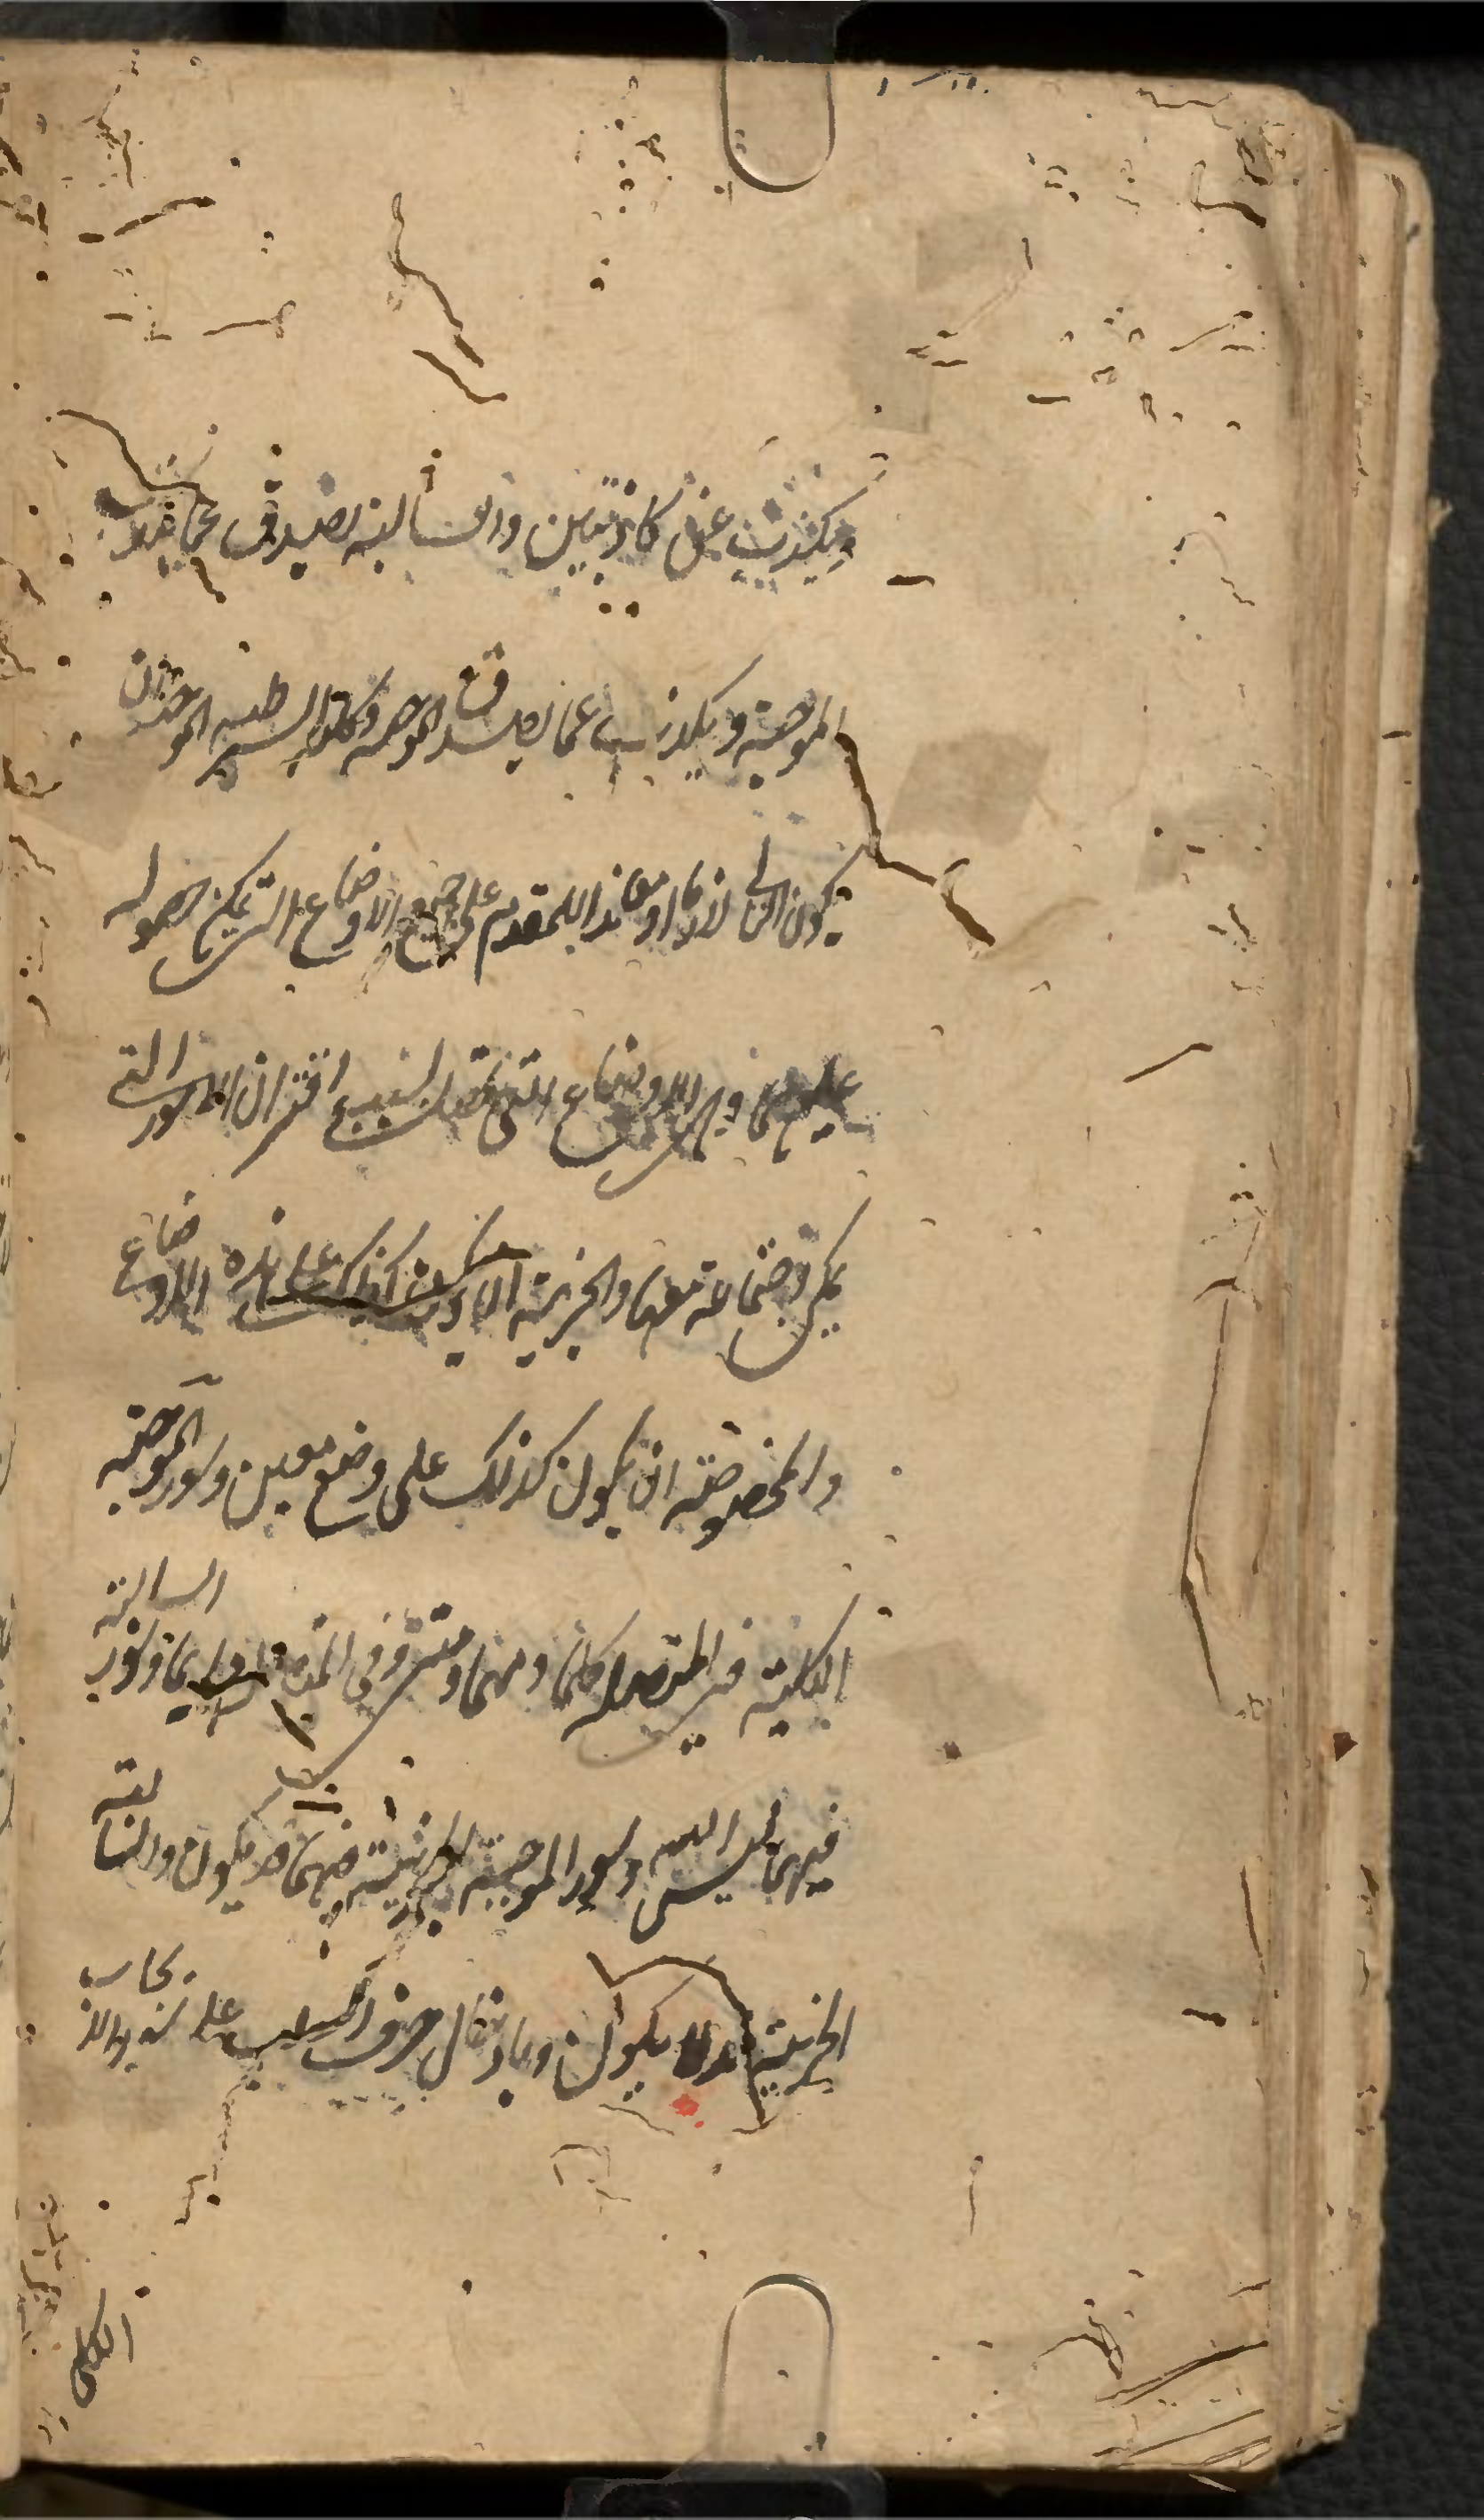 ويكذب عن كاذبتين والسالبة تصدق عما يكذب
الموجبة وتكذب عما يصدق الموجبة وكلية الشرطية الموجبة ان
يكون التالي لازما او معاندا للمقدم على جميع الاوضاع التي يمكن حصوله
عليها وهي الاوضاع التي تحصل بسبب اقتران الامور التي
يمكن اجتماعه معها والجزئية ان يكون كذلك على بعض هذه الاوضاع
والمخصوصة ان يكون كذلك على وضع معين وسور الموجبة
الكلية في المتصلة كلما ومهما ومتى وفي المنفصلة دايما وسور السالبة
فيهما ليس البتة وسور الموجبة الجزئية فيهما قد يكون والسالبة
الجزئية قد لا يكون وبادخال حرف السلب على سور الايجاب
الكلي